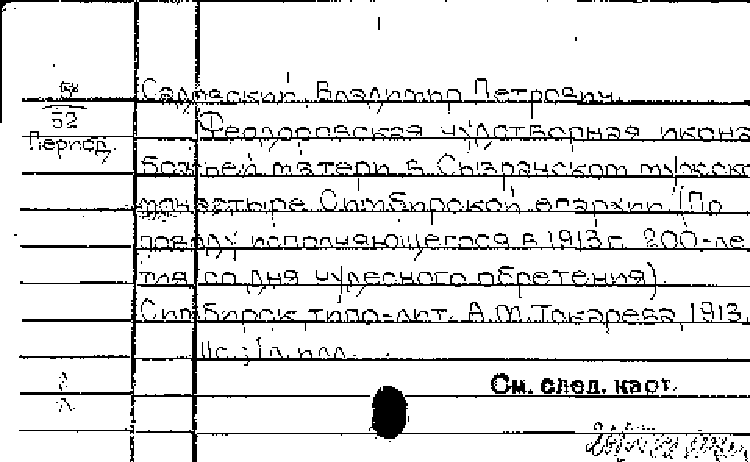 Садовский, Владимир Петрович.
52
Период.
Феодоровская чудотворная икона
Божией матери в Сызранском мужско
монастыре Симбирской епархии (По
поводу исполняющегося в 1913 г. 200-ле
тия со дня чудесного обретения)
Симбирск типо-лит. А.М.Токарева 1913.
11с.; 1 л. илл.
См. след. карт.